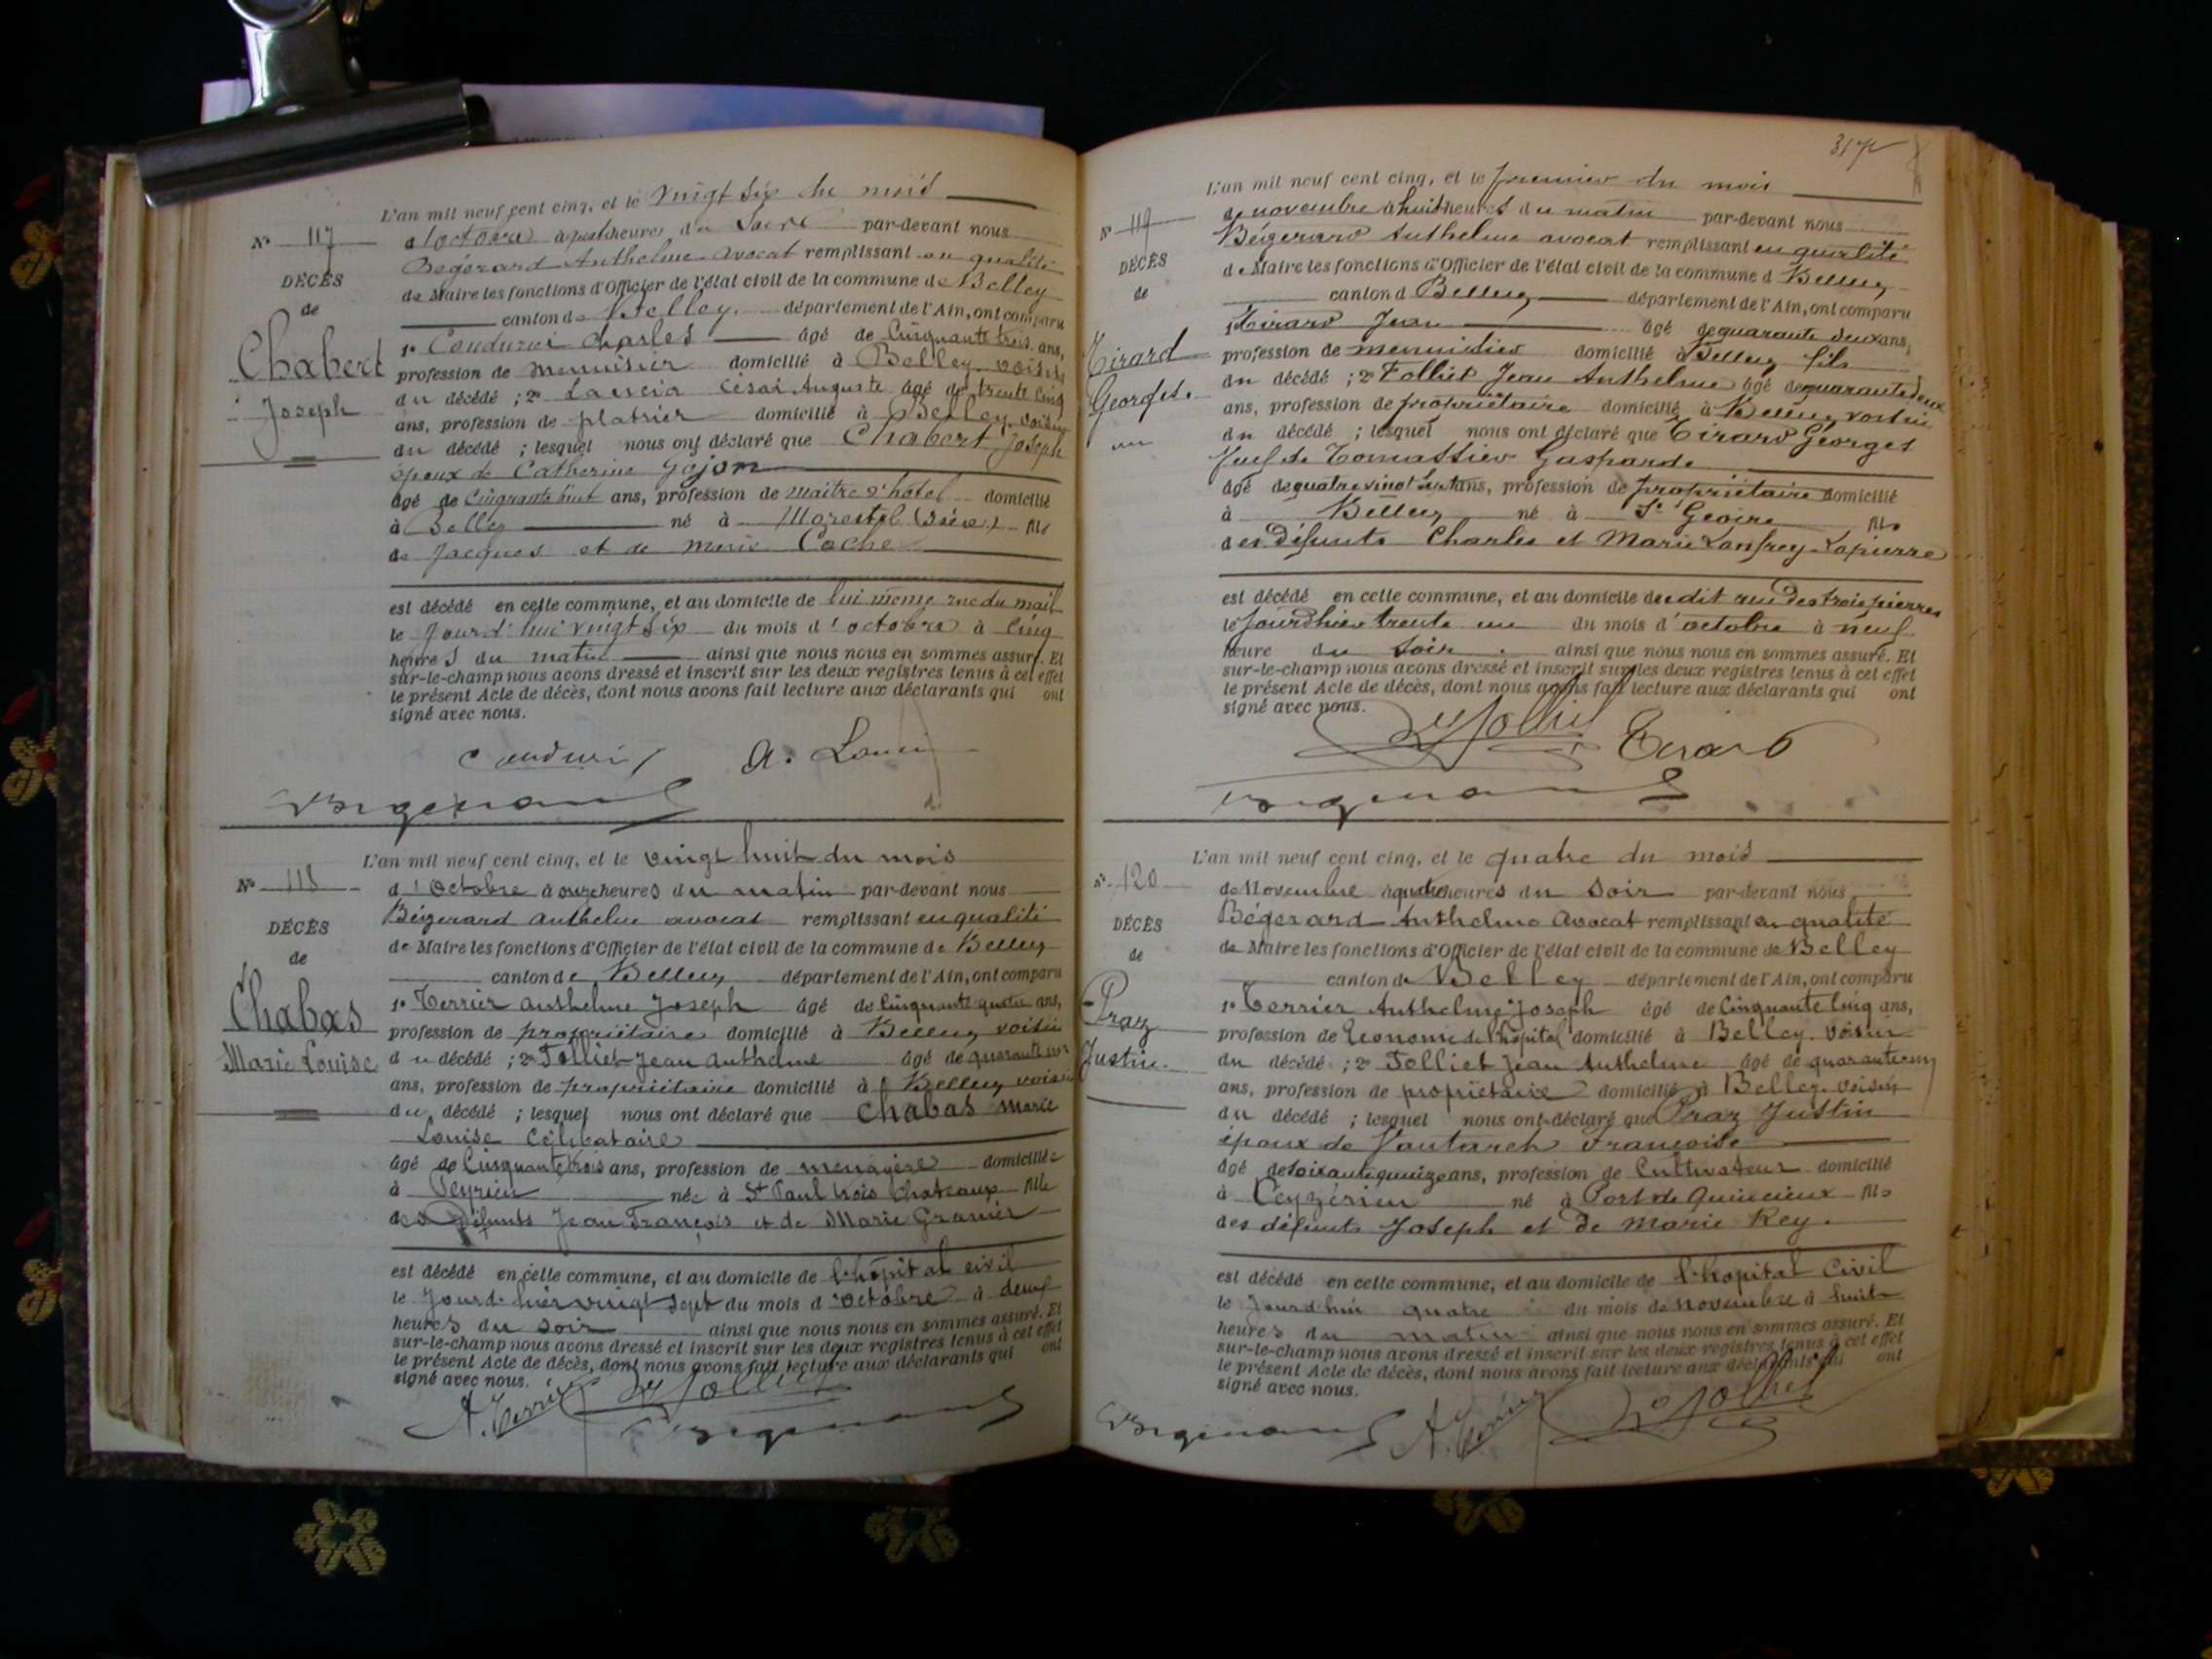 L'an mil neuf cent cinq, et le vingt six du mois
N° 117
d'octobre à heures du soir par-devant nous
Bégerard Anthelme avocat remplissant en qualité
DÉCÈS
de Maire les fonctions d'Officier de l'état civil de la commune de Belley
de
canton de Belley département de l'Ain, ont comparu
Chabert
1° Conduzer Charles âgé de cinquante trois ans,
profession de menuisier domicilié à Belley voisin
Joseph
du décédé ; 2° César Auguste âgé de trente cinq
ans, profession de platrier domicilié à Belley voisin
du décédé ; lesquel nous ont déclaré que Chabert Joseph
époux de Catherine Gojon
âgé de cinquante huit ans, profession de maitre d'hôtel domicilié
à Belley né à Morestel (Isère) fils
de Jacques et de Marie Coche
est décédé en cette commune, et au domicile de lui même rue du mail
le jourd'hui vingt six du mois d'octobre à cinq
heures du matin ainsi que nous nous en sommes assuré. Et
sur-le-champ nous avons dressé et inscrit sur les deux registres tenus à cet effet
le présent Acte de décès, dont nous avons fait lecture aux déclarants qui ont
signé avec nous.
L'an mil neuf cent cinq, et le vingt huit du mois
N° 118
d'Octobre à onze heures du matin par-devant nous
Bégerard anthelme avocat remplissant en qualité
DÉCÈS
de Maire les fonctions d'Officier de l'état civil de la commune de Belley
de
canton de Belley département de l'Ain, ont comparu
Chabas
1° Terrier anthelme Joseph âgé de cinquante quatre ans,
profession de propriétaire domicilié à Belley voisin
Marie Louise
du décédé ; 2° Folliet Jean Anthelme âgé de quarante
ans, profession de propriétaire domicilié à Belley voisin
du décédé ; lesquel nous ont déclaré que Chabas Marie
Louise Célibataire
âgé de cinquante trois ans, profession de menagère domiciliée
à Peyrieu née à St Paul trois Chateaux fille
des Défunts Jean François et de Marie Granier
est décédé en cette commune, et au domicile de l'hôpital civil
le jourd'hier vingt sept du mois d'octobre à deux
heures du soir ainsi que nous nous en sommes assuré. Et
sur-le-champ nous avons dressé et inscrit sur les deux registres tenus à cet effet
le présent Acte de décès, dont nous avons fait lecture aux déclarants qui ont
signé avec nous.
A. Terrier Folliet
317
L'an mil neuf cent cinq, et le premier du mois
N° 119
de novembre à huit heures du matin par-devant nous
Bégerard Anthelme avocat remplissant en qualité
DÉCÈS
de Maire les fonctions d'Officier de l'état civil de la commune d Belley
de
canton d Belley département de l'Ain, ont comparu
Tirard
1° Tirard Jean âgé de quarante deux ans,
profession de menuisier domicilié à Belley fils
Georges
du décédé ; 2° Folliet Jean Anthelme âgé de quarante deux
ans, profession de propriétaire domicilié à Belley voisin
du décédé ; lesquel nous ont déclaré que Tirard Georges
veuf de Tomassier Gasparde
âgé de quatre vingt sept ans, profession de propriétaire domicilié
à Belley né à St Geoire fils
des Défunts Charles et Marie Lanfrey-Lapierre
est décédé en cette commune, et au domicile du dit rue des trois pierres
le jourd'hier trente un du mois d'octobre à neuf
heure du soir ainsi que nous nous en sommes assuré. Et
sur-le-champ nous avons dressé et inscrit sur les deux registres tenus à cet effet
le présent Acte de décès, dont nous avons fait lecture aux déclarants qui ont
signé avec nous.
Folliet Tirard
L'an mil neuf cent cinq, et le quatre du mois
N° 120
de Novembre à quatre heures du soir par-devant nous
Bégerard Anthelme Avocat remplissant en qualité
DÉCÈS
de Maire les fonctions d'Officier de l'état civil de la commune de Belley
de
canton de Belley département de l'Ain, ont comparu
Praz
1° Terrier Anthelme Joseph âgé de cinquante cinq ans,
profession de Econome de l'hôpital domicilié à Belley voisin
Justin
du décédé ; 2° Folliet Jean Anthelme âgé de quarante
ans, profession de propriétaire domicilié à Belley voisin
du décédé ; lesquel nous ont déclaré que Praz Justin
époux de Vautarch Françoise
âgé de soixante quinze ans, profession de Cultivateur domicilié
à Ceyzérieu né à Port de Quincieux fils
des défunts Joseph et de Marie Rey.
est décédé en cette commune, et au domicile de l'hopital Civil
le jourd'hui quatre du mois de novembre à huit
heures du matin ainsi que nous nous en sommes assuré. Et
sur-le-champ nous avons dressé et inscrit sur les deux registres tenus à cet effet
le présent Acte de décès, dont nous avons fait lecture aux déclarants qui ont
signé avec nous.
A. Terrier Folliet